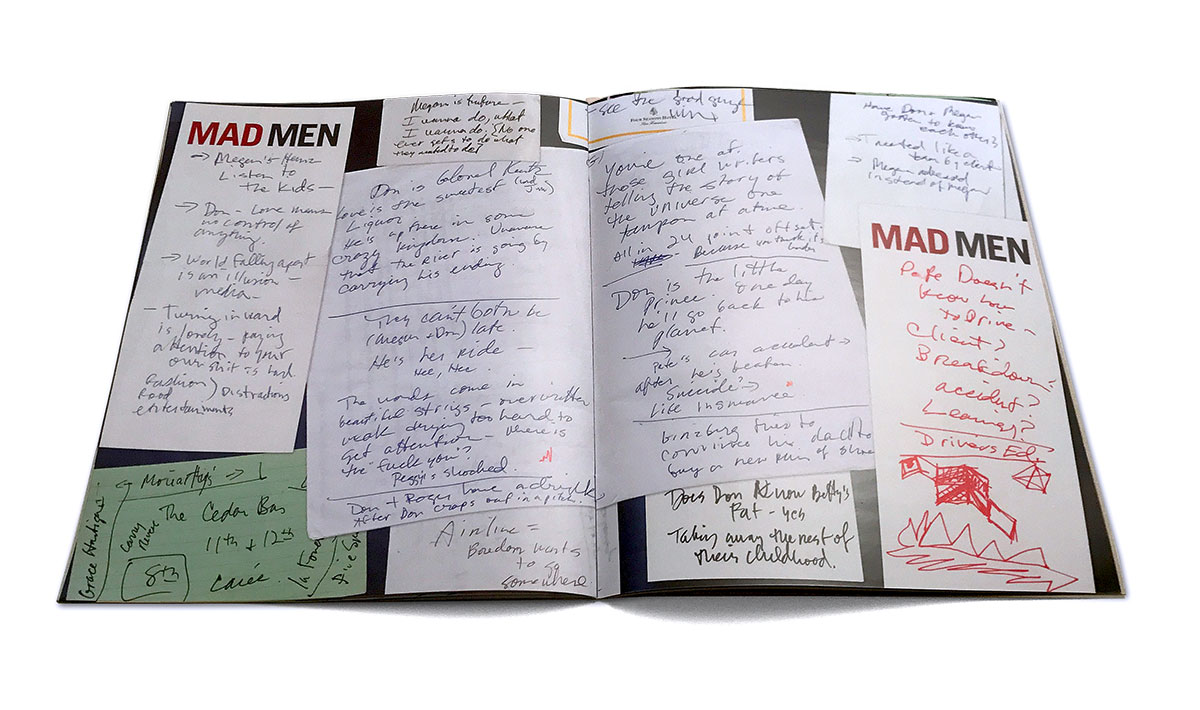 MAD MEN
→ Megan's Heinz
Listen to
the kids —
→ Don - Love means
no control of
anything.
→ World Falling apart
is an illusion —
media —
— Turning inward
is lonely — paying
attention to your
own shit is hard.
Fashion ) Distractions
Food
entertainments
Megan is future —
I wanna do, what
I wanna do. No one
ever gets to do what
they wanted to do!
See the good guys
FOUR SEASONS HOTEL
Have Don & Megan
gotten to know
each other?
→ Treated like a
→ Megan
instead of Megan
Don is Colonel Kurtz
Love is the sweetest
Liquor
He's up there in some
crazy kingdom. Unaware
that the River is going by
carrying his ending.
They can't both be
(Megan + Don) late.
He's her Ride —
Hee, Hee
The words come in
beautiful strings — overwritten
weak trying too hard to
get attention — where is
the "fuck you"?
Peggy is shocked.
Don + Roger have a drink
After Don craps out in a pitch.
You're one of
those girl writers
telling the story of
the universe one
tampon at a time.
All in 24 point offset.
Because you think it's
Don is the little
Prince. One day
he'll go back to his
planet.
→ Pete's car accident →
after he's beaten.
Suicide? →
Life Insurance
Ginzburg tries to
convince his dad to
buy a new pair of shoes
MAD MEN
Pete Doesn't
know how
to drive —
Client?
Breakdown?
accident?
Learning?
Drivers Ed?
← Moriarty's →
The Cedar Bar
11th + 12th
8th
Airline =
Boredom wants
to go
somewhere
Does Don Know Betty's
Fat - yes
Taking away the rest of
their childhood.